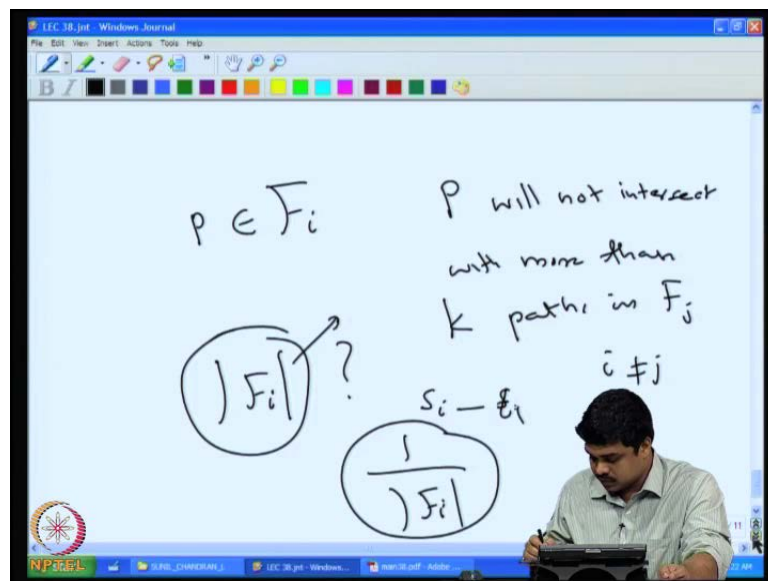 LEC 38.jnt - Windows Journal
File Edit View Insert Actions Tools Help
B I
P ∈ F_i
P will not intersect
with more than
k paths in F_j
i ≠ j
|F_i| ?
s_i — t_i
1
|F_i|
NPTEL
SUNIL_CHANDRAN_L
LEC 38.jnt - Windows...
man38.pdf - Adobe ...